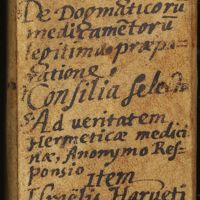 De Dogmaticorũ
medicamentorũ
legitima præpa-
ratione
Consilia selecta
Ad veritatem
Hermeticæ medici
næ, Anonymo Res-
ponsio
Item
Israelis Harveti